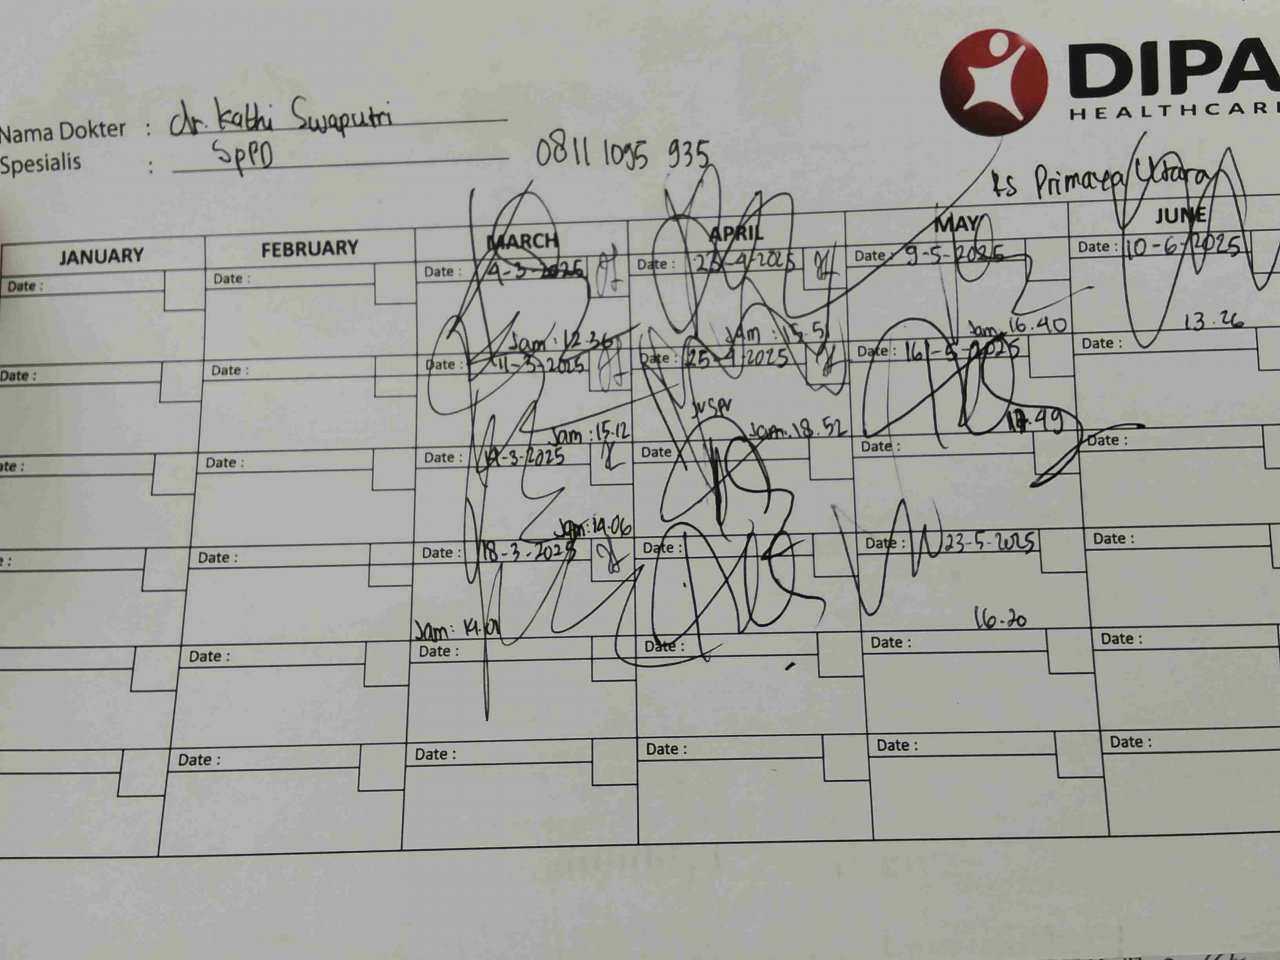 DIPA
HEALTHCAR
Nama Dokter : dr. Kathi Swaputri
Spesialis : SpPD
0811 1095 935
RS Primaya Utara
JANUARY FEBRUARY MARCH APRIL MAY JUNE
Date : Date : Date : 4-3-2025 Date : Date : 9-5-2025 Date : 10-6-2025
Jam : 12.36 Jam : 15.5 Jam 16.40 13.26
Date : Date : Date : 11-3-2025 Date : 25-4-2025 Date : 16-5-2025 Date :
Jam : 15.12 Jam. 18.52 17.49
ate : Date : Date : -3-2025 Date Date : Date :
Jam : 14.06
: Date : Date : 18-3-2025 Date : Date : 23-5-2025 Date :
Jam : 14.01 16-20
Date : Date : Date : Date : Date :
Date : Date : Date : Date : Date :